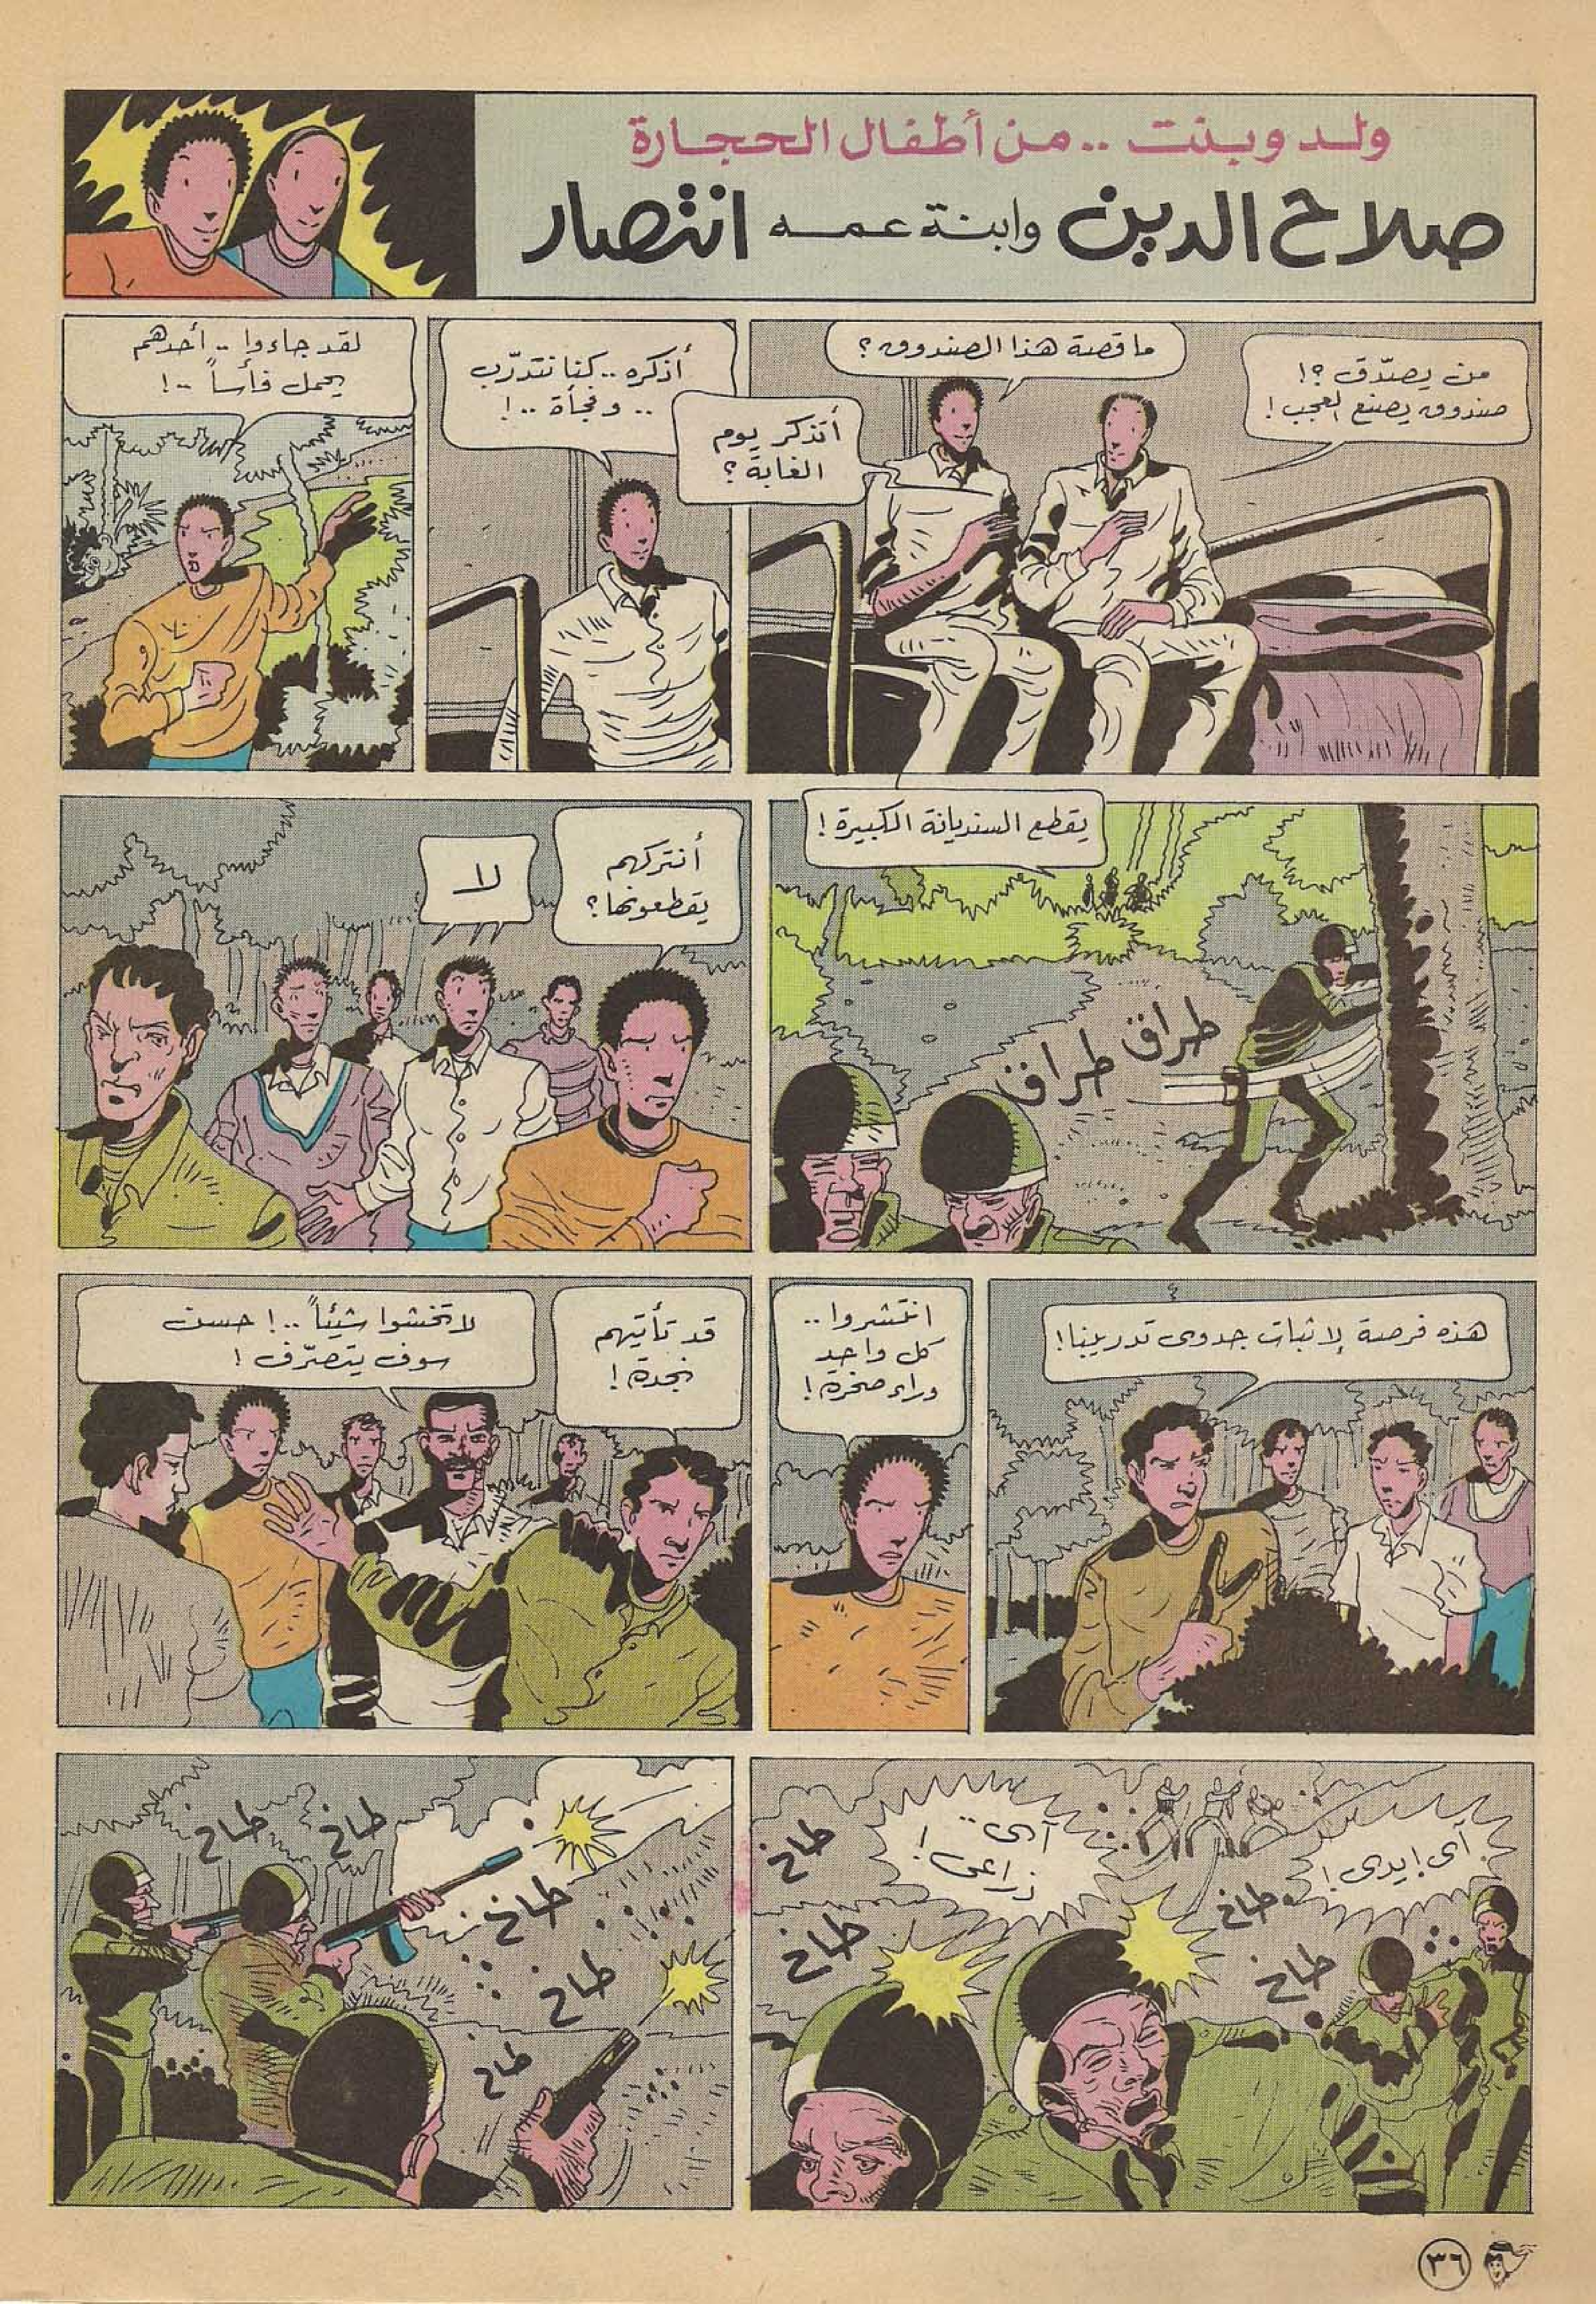 ولد وبنت .. من أطفال الحجارة
صلاح الدين وابنة عمه انتصار
من يصدّق ؟!
صندوق يصنع العجب !
ما قصة هذا الصندوق ؟
أتذكر يوم
الغابة ؟
أذكره .. كنا نتدرّب
.. وفجأة .. !
لقد جاءوا .. أحدهم
يحمل فأساً .. !
يقطع السنديانة الكبيرة !
طراق طراق
أنتركهم
يقطعونها ؟
لا
هذه فرصة لإثبات جدوى تدريبنا !
انتشروا ..
كل واحد
وراء صخرة !
قد تأتيهم
نجدة !
لا تخشوا شيئاً .. ! حسن
سوف يتصرّف !
آى ! إيدى !
آى ..
ذراعى !
طاخ
طاخ
طاخ
طاخ
طاخ
طاخ
طاخ
طاخ
طاخ
٣٦